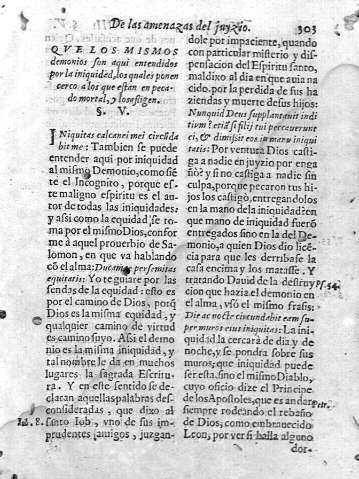 De las amenazas del juyzio. 303
§. V.
QVE LOS MISMOS
demonios son aqui entendidos
por la iniquidad, los quales ponen
cerco a los que estan en peca-
do mortal, y los afligen.
§. V.
INiquitas calcanei mei circūda
bit me: Tambien se puede
entender aqui por iniquidad
al mismo Demonio, como siē
te el Incognito, porque es-
te maligno espiritu es el au-
tor de todas las iniquidades:
y assi como la equidad, se to-
ma por el mismo Dios, confor
me à aquel prouerbio de Sa-
lomon, en que va hablando
cō el alma: Ducam te per semitas
equitatis: Yo te guiare por las
sendas de la equidad: esto es
por el camino de Dios, porq̃
Dios es la misma equidad, y
qualquier camino de virtud
es camino suyo. Assi el demo
nio es la misma iniquidad, y
tal nombre le da en muchos
lugares la sagrada Escritu-
ra. Y en este sentido se de-
claran aquellas palabras des-
consideradas, que dixo al
Iob. 8. santo Iob, vno de sus im-
prudentes amigos, juzgan-
dole por impaciente, quando
con particular misterio y dis-
pensacion del Espiritu santo,
maldixo al dia en que auia na
cido. por la perdida de sus ha
ziendas y muerte de sus hijos:
Nunquid Deus supplantauit indi
tium? etiā si filij tui peccauerunt
ei, & dimisit eos in manu iniqui
tatis: Por ventura Dios casti-
ga a nadie en juyzio por enga
ño? y si no castiga a nadie sin
culpa, porque pecaron tus hi-
jos los castigò, entregandolos
en la mano de la iniquidad: en
que mano de iniquidad fuerō
entregados sino en la del De-
monio, a quien Dios dio licē-
cia para que les derribase la
casa encima y los matasse. Y
tratando Dauid de la destruy
cion que hazia el demonio en
el alma, vsò el mismo frasis:
Psf. 54.
Die ac nocte circundabit eam su-
per muros eius iniquitas: La ini-
quidad la cercarà de dia y de
noche, y se pondra sobre sus
muros, que iniquidad puede
ser esta, sino el mismo Diablo,
cuyo oficio dize el Principe
de los Apostoles, que es andar
siempre rodeando el rebaño
de Dios, como embrauecido
Leon, por ver si halla alguno
dor-